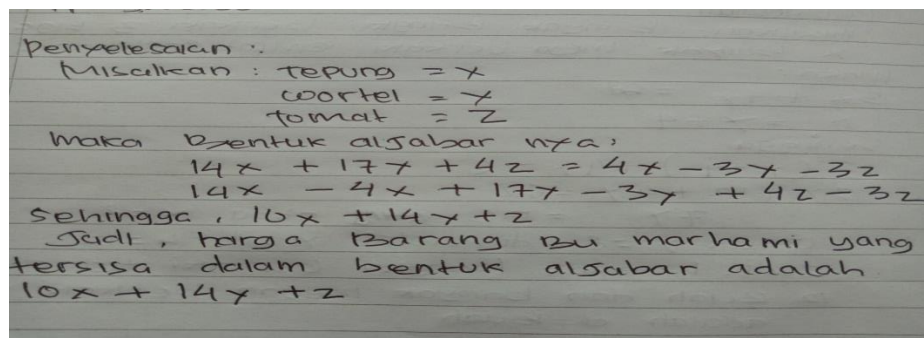 Penyelesaian :
Misalkan : tepung = x
wortel = y
tomat = z
maka Bentuk aljabar nya,
14x + 17y + 4z = 4x - 3y - 3z
14x - 4x + 17y - 3y + 4z - 3z
sehingga, 10x + 14y + z
Jadi, harga Barang Bu marhami yang
tersisa dalam bentuk aljabar adalah
10x + 14y + z